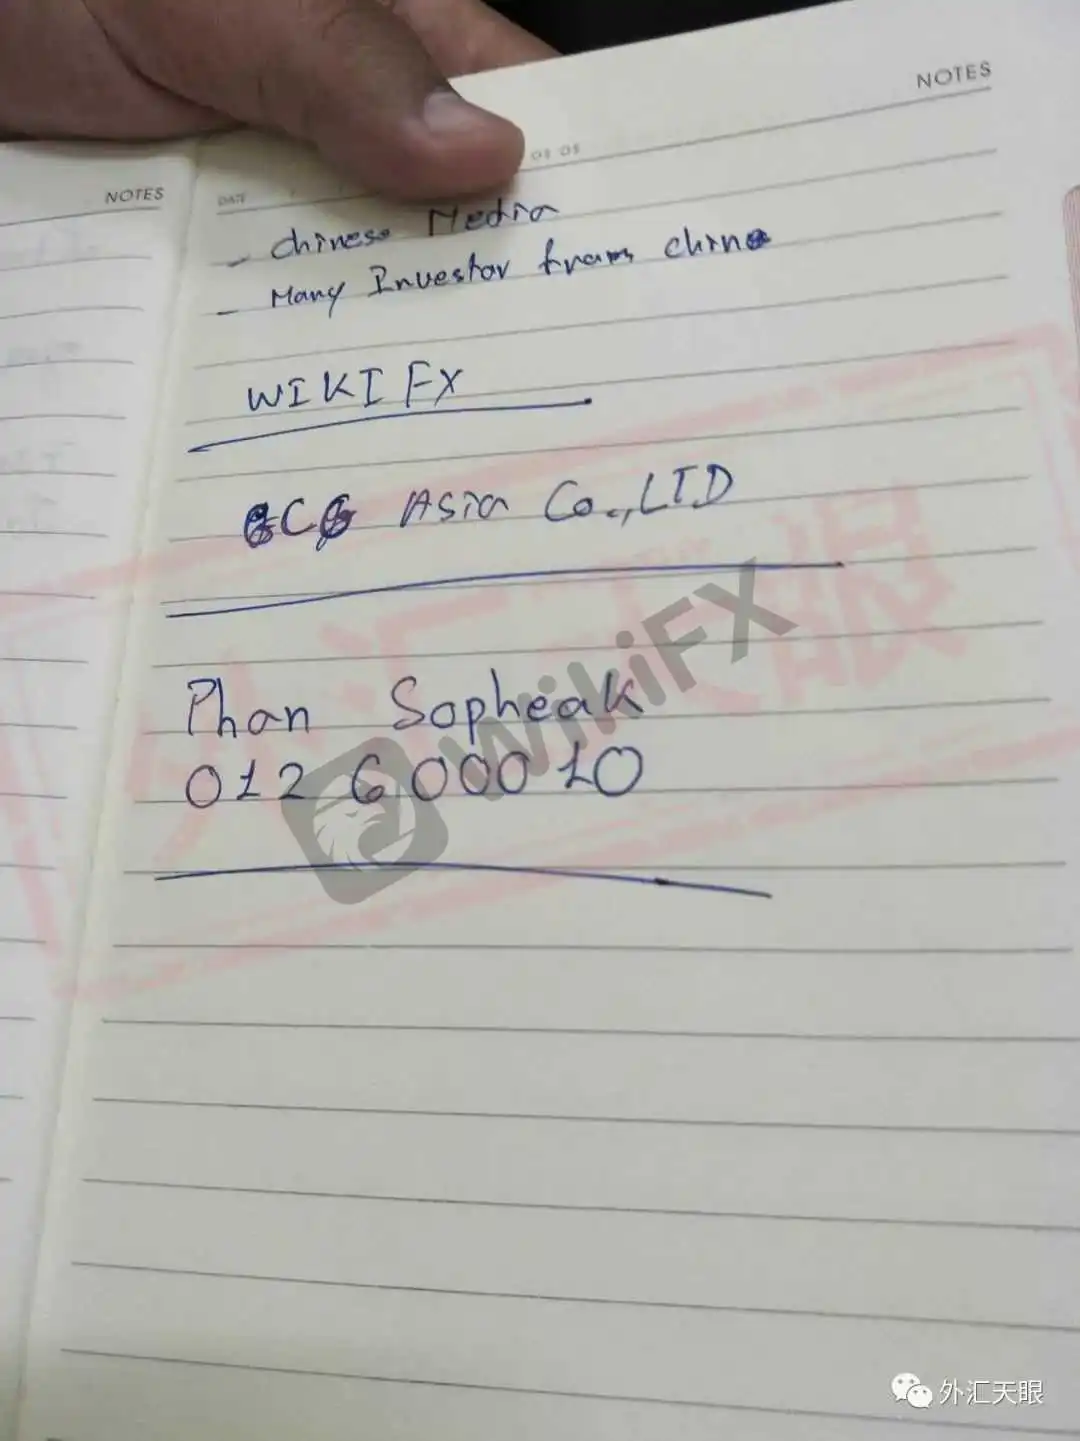 NOTES
NOTES
DATE
- Chinese Media
- Many Investor from China
WIKI FX
Asia Co.,LTD
Phan Sopheak
012 600010
外汇天眼
WikiFX
外汇天眼